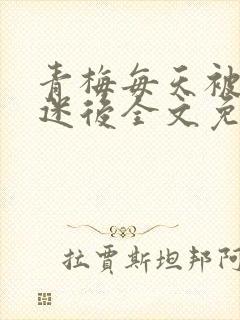 青梅每天被
迷後全文免
拉賈斯坦邦阿